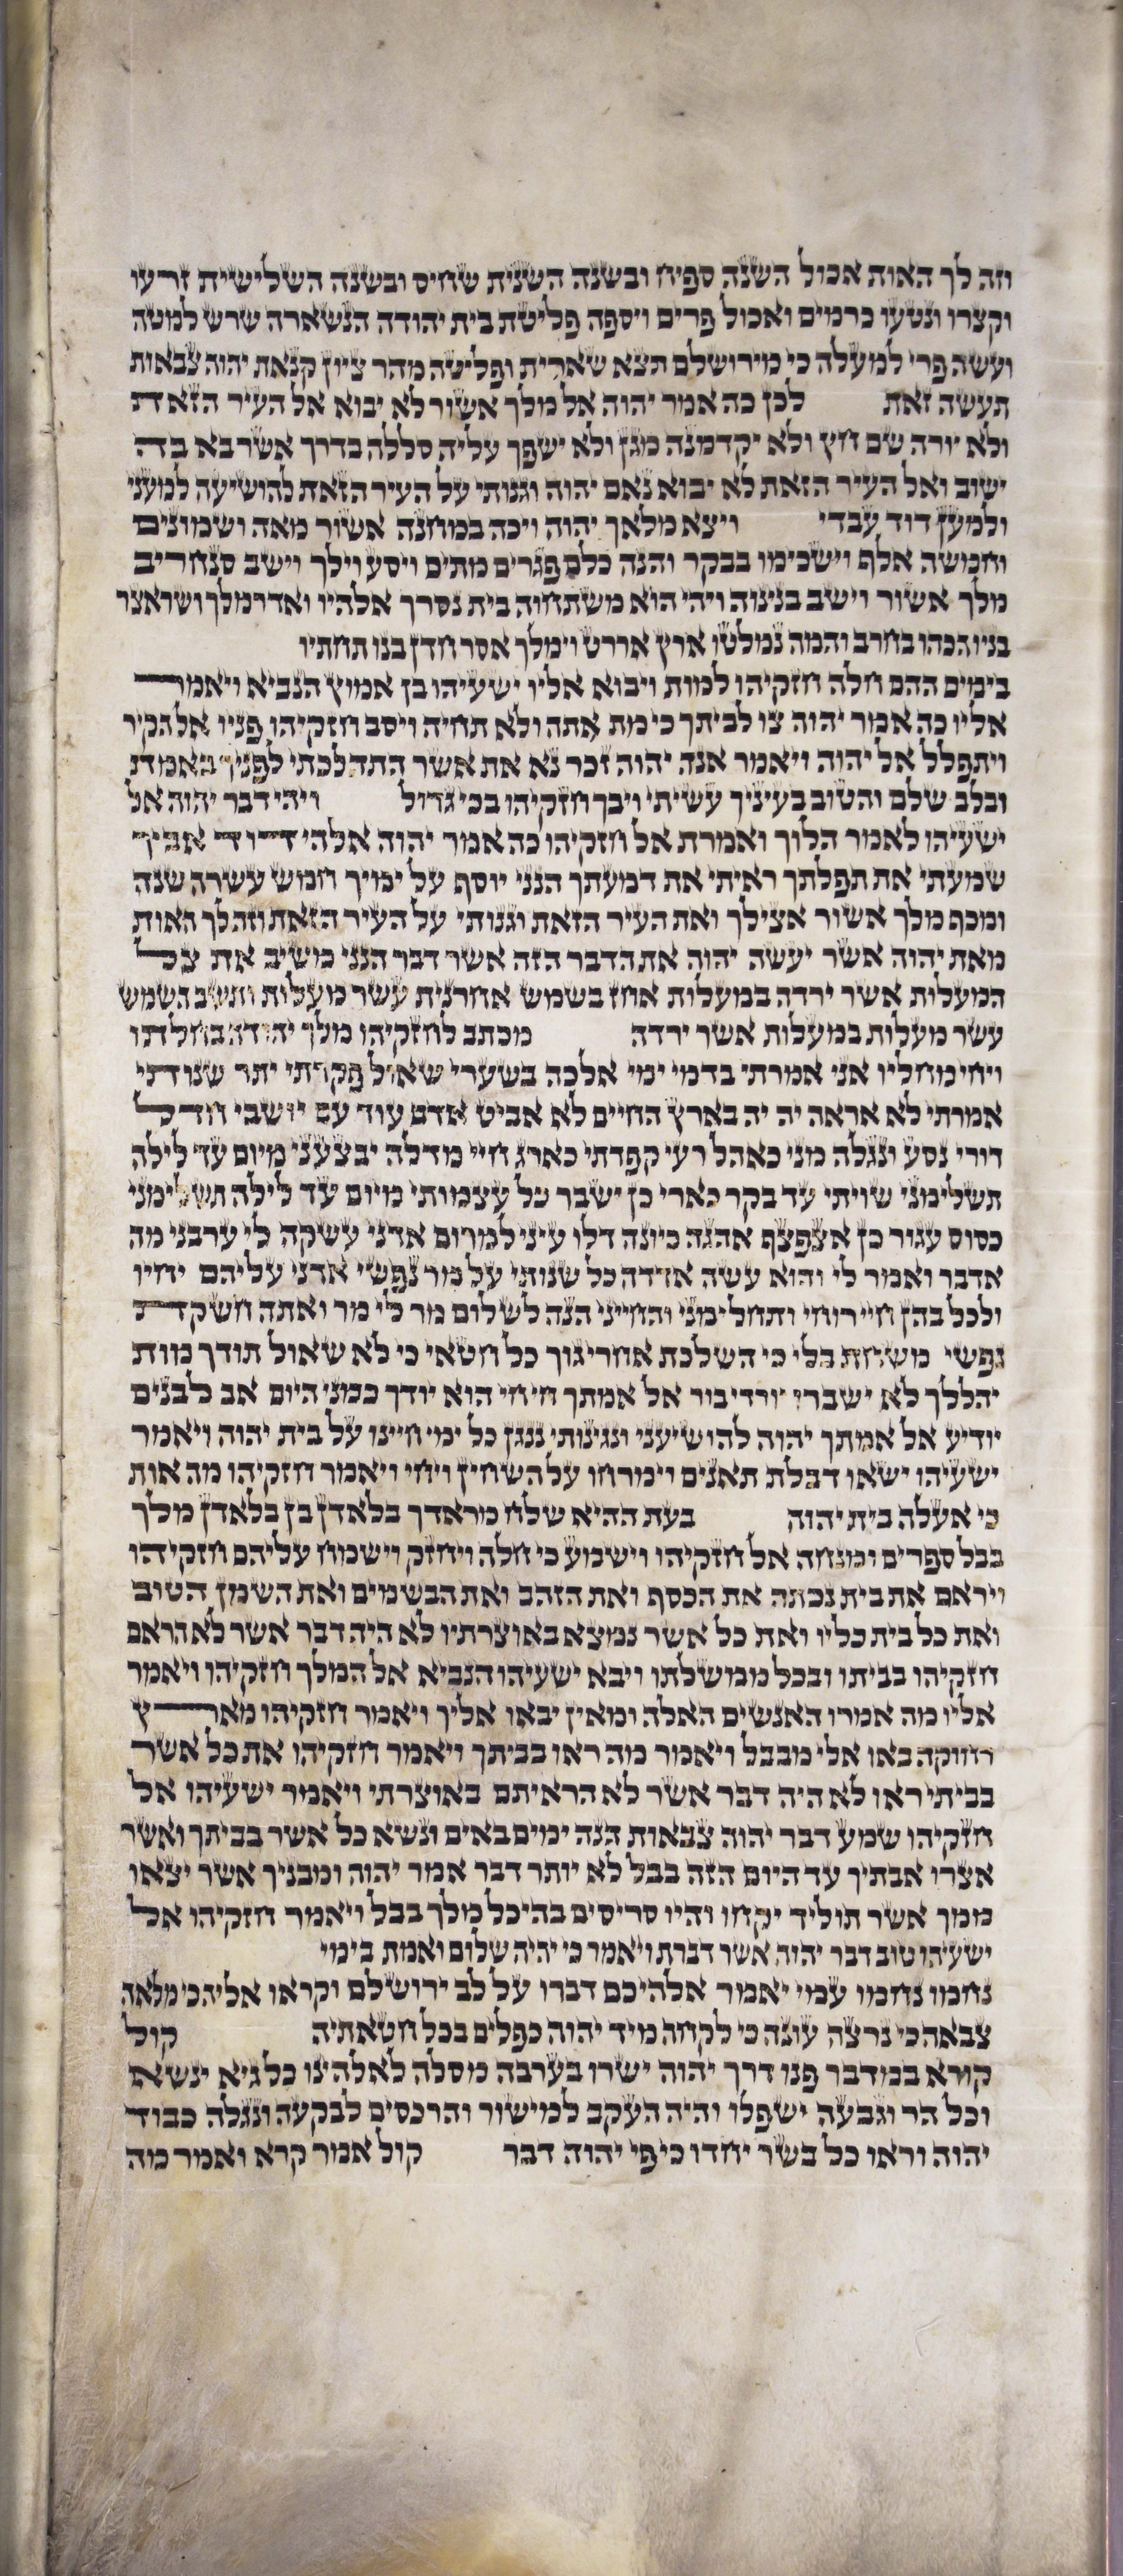 וזה לך האות אכול השנה ספיח ובשנה השנית שחיס ובשנה השלישית זרעו
וקצרו ונטעו כרמים ואכול פרים ויספה פליטת בית יהודה הנשארה שרש למטה
ועשה פרי למעלה כי מירושלם תצא שארית ופליטה מהר ציון קנאת יהוה צבאות
תעשה זאת לכן כה אמר יהוה אל מלך אשור לא יבוא אל העיר הזאת
ולא יורה שם חץ ולא יקדמנה מגן ולא ישפך עליה סללה בדרך אשר בא בה
ישוב ואל העיר הזאת לא יבוא נאם יהוה וגנותי על העיר הזאת להושיעה למעני
ולמען דוד עבדי ויצא מלאך יהוה ויכה במחנה אשור מאה ושמונים
וחמשה אלף וישכימו בבקר והנה כלם פגרים מתים ויסע וילך וישב סנחריב
מלך אשור וישב בנינוה ויהי הוא משתחוה בית נסרך אלהיו ואדרמלך ושראצר
בניו הכהו בחרב והמה נמלטו ארץ אררט וימלך אסר חדן בנו תחתיו
בימים ההם חלה חזקיהו למות ויבוא אליו ישעיהו בן אמוץ הנביא ויאמר
אליו כה אמר יהוה צו לביתך כי מת אתה ולא תחיה ויסב חזקיהו פניו אל הקיר
ויתפלל אל יהוה ויאמר אנה יהוה זכר נא את אשר התהלכתי לפניך באמת
ובלב שלם והטוב בעיניך עשיתי ויבך חזקיהו בכי גדול ויהי דבר יהוה אל
ישעיהו לאמר הלוך ואמרת אל חזקיהו כה אמר יהוה אלהי דוד אביך
שמעתי את תפלתך ראיתי את דמעתך הנני יוסף על ימיך חמש עשרה שנה
ומכף מלך אשור אצילך ואת העיר הזאת וגנותי על העיר הזאת וזה לך האות
מאת יהוה אשר יעשה יהוה את הדבר הזה אשר דבר הנני משיב את צל
המעלות אשר ירדה במעלות אחז בשמש אחרנית עשר מעלות ותשב השמש
עשר מעלות במעלות אשר ירדה מכתב לחזקיהו מלך יהודה בחלתו
ויחי מחליו אני אמרתי בדמי ימי אלכה בשערי שאול פקדתי יתר שנותי
אמרתי לא אראה יה יה בארץ החיים לא אביט אדם עוד עם יושבי חדל
דורי נסע ונגלה מני כאהל רעי קפדתי כארג חיי מדלה יבצעני מיום עד לילה
תשלימני שויתי עד בקר כארי כן ישבר כל עצמותי מיום עד לילה תשלימני
כסוס עגור כן אצפצף אהגה כיונה דלו עיני למרום אדני עשקה לי ערבני מה
אדבר ואמר לי והוא עשה אדדה כל שנותי על מר נפשי אדני עליהם יחיו
ולכל בהן חיי רוחי ותחלימני והחייני הנה לשלום מר לי מר ואתה חשקת
נפשי משחת בלי כי השלכת אחרי גוך כל חטאי כי לא שאול תודך מות
יהללך לא ישברו יורדי בור אל אמתך חי חי הוא יודך כמני היום אב לבנים
יודיע אל אמתך יהוה להושיעני ונגינותי ננגן כל ימי חיינו על בית יהוה ויאמר
ישעיהו ישאו דבלת תאנים וימרחו על השחין ויחי ויאמר חזקיהו מה אות
כי אעלה בית יהוה בעת ההיא שלח מראדך בלאדן בן בלאדן מלך
בבל ספרים ומנחה אל חזקיהו וישמע כי חלה ויחזק וישמח עליהם חזקיהו
ויראם את בית נכתה את הכסף ואת הזהב ואת הבשמים ואת השמן הטוב
ואת כל בית כליו ואת כל אשר נמצא באוצרתיו לא היה דבר אשר לא הראם
חזקיהו בביתו ובכל ממשלתו ויבא ישעיהו הנביא אל המלך חזקיהו ויאמר
אליו מה אמרו האנשים האלה ומאין יבאו אליך ויאמר חזקיהו מארץ
רחוקה באו אלי מבבל ויאמר מה ראו בביתך ויאמר חזקיהו את כל אשר
בביתי ראו לא היה דבר אשר לא הראיתם באוצרתי ויאמר ישעיהו אל
חזקיהו שמע דבר יהוה צבאות הנה ימים באים ונשא כל אשר בביתך ואשר
אצרו אבתיך עד היום הזה בבל לא יותר דבר אמר יהוה ומבניך אשר יצאו
ממך אשר תוליד יקחו והיו סריסים בהיכל מלך בבל ויאמר חזקיהו אל
ישעיהו טוב דבר יהוה אשר דברת ויאמר כי יהיה שלום ואמת בימי
נחמו נחמו עמי יאמר אלהיכם דברו על לב ירושלם וקראו אליה כי מלאה
צבאה כי נרצה עונה כי לקחה מיד יהוה כפלים בכל חטאתיה קול
קורא במדבר פנו דרך יהוה ישרו בערבה מסלה לאלהינו כל גיא ינשא
וכל הר וגבעה ישפלו והיה העקב למישור והרכסים לבקעה ונגלה כבוד
יהוה וראו כל בשר יחדו כי פי יהוה דבר קול אמר קרא ואמר מה